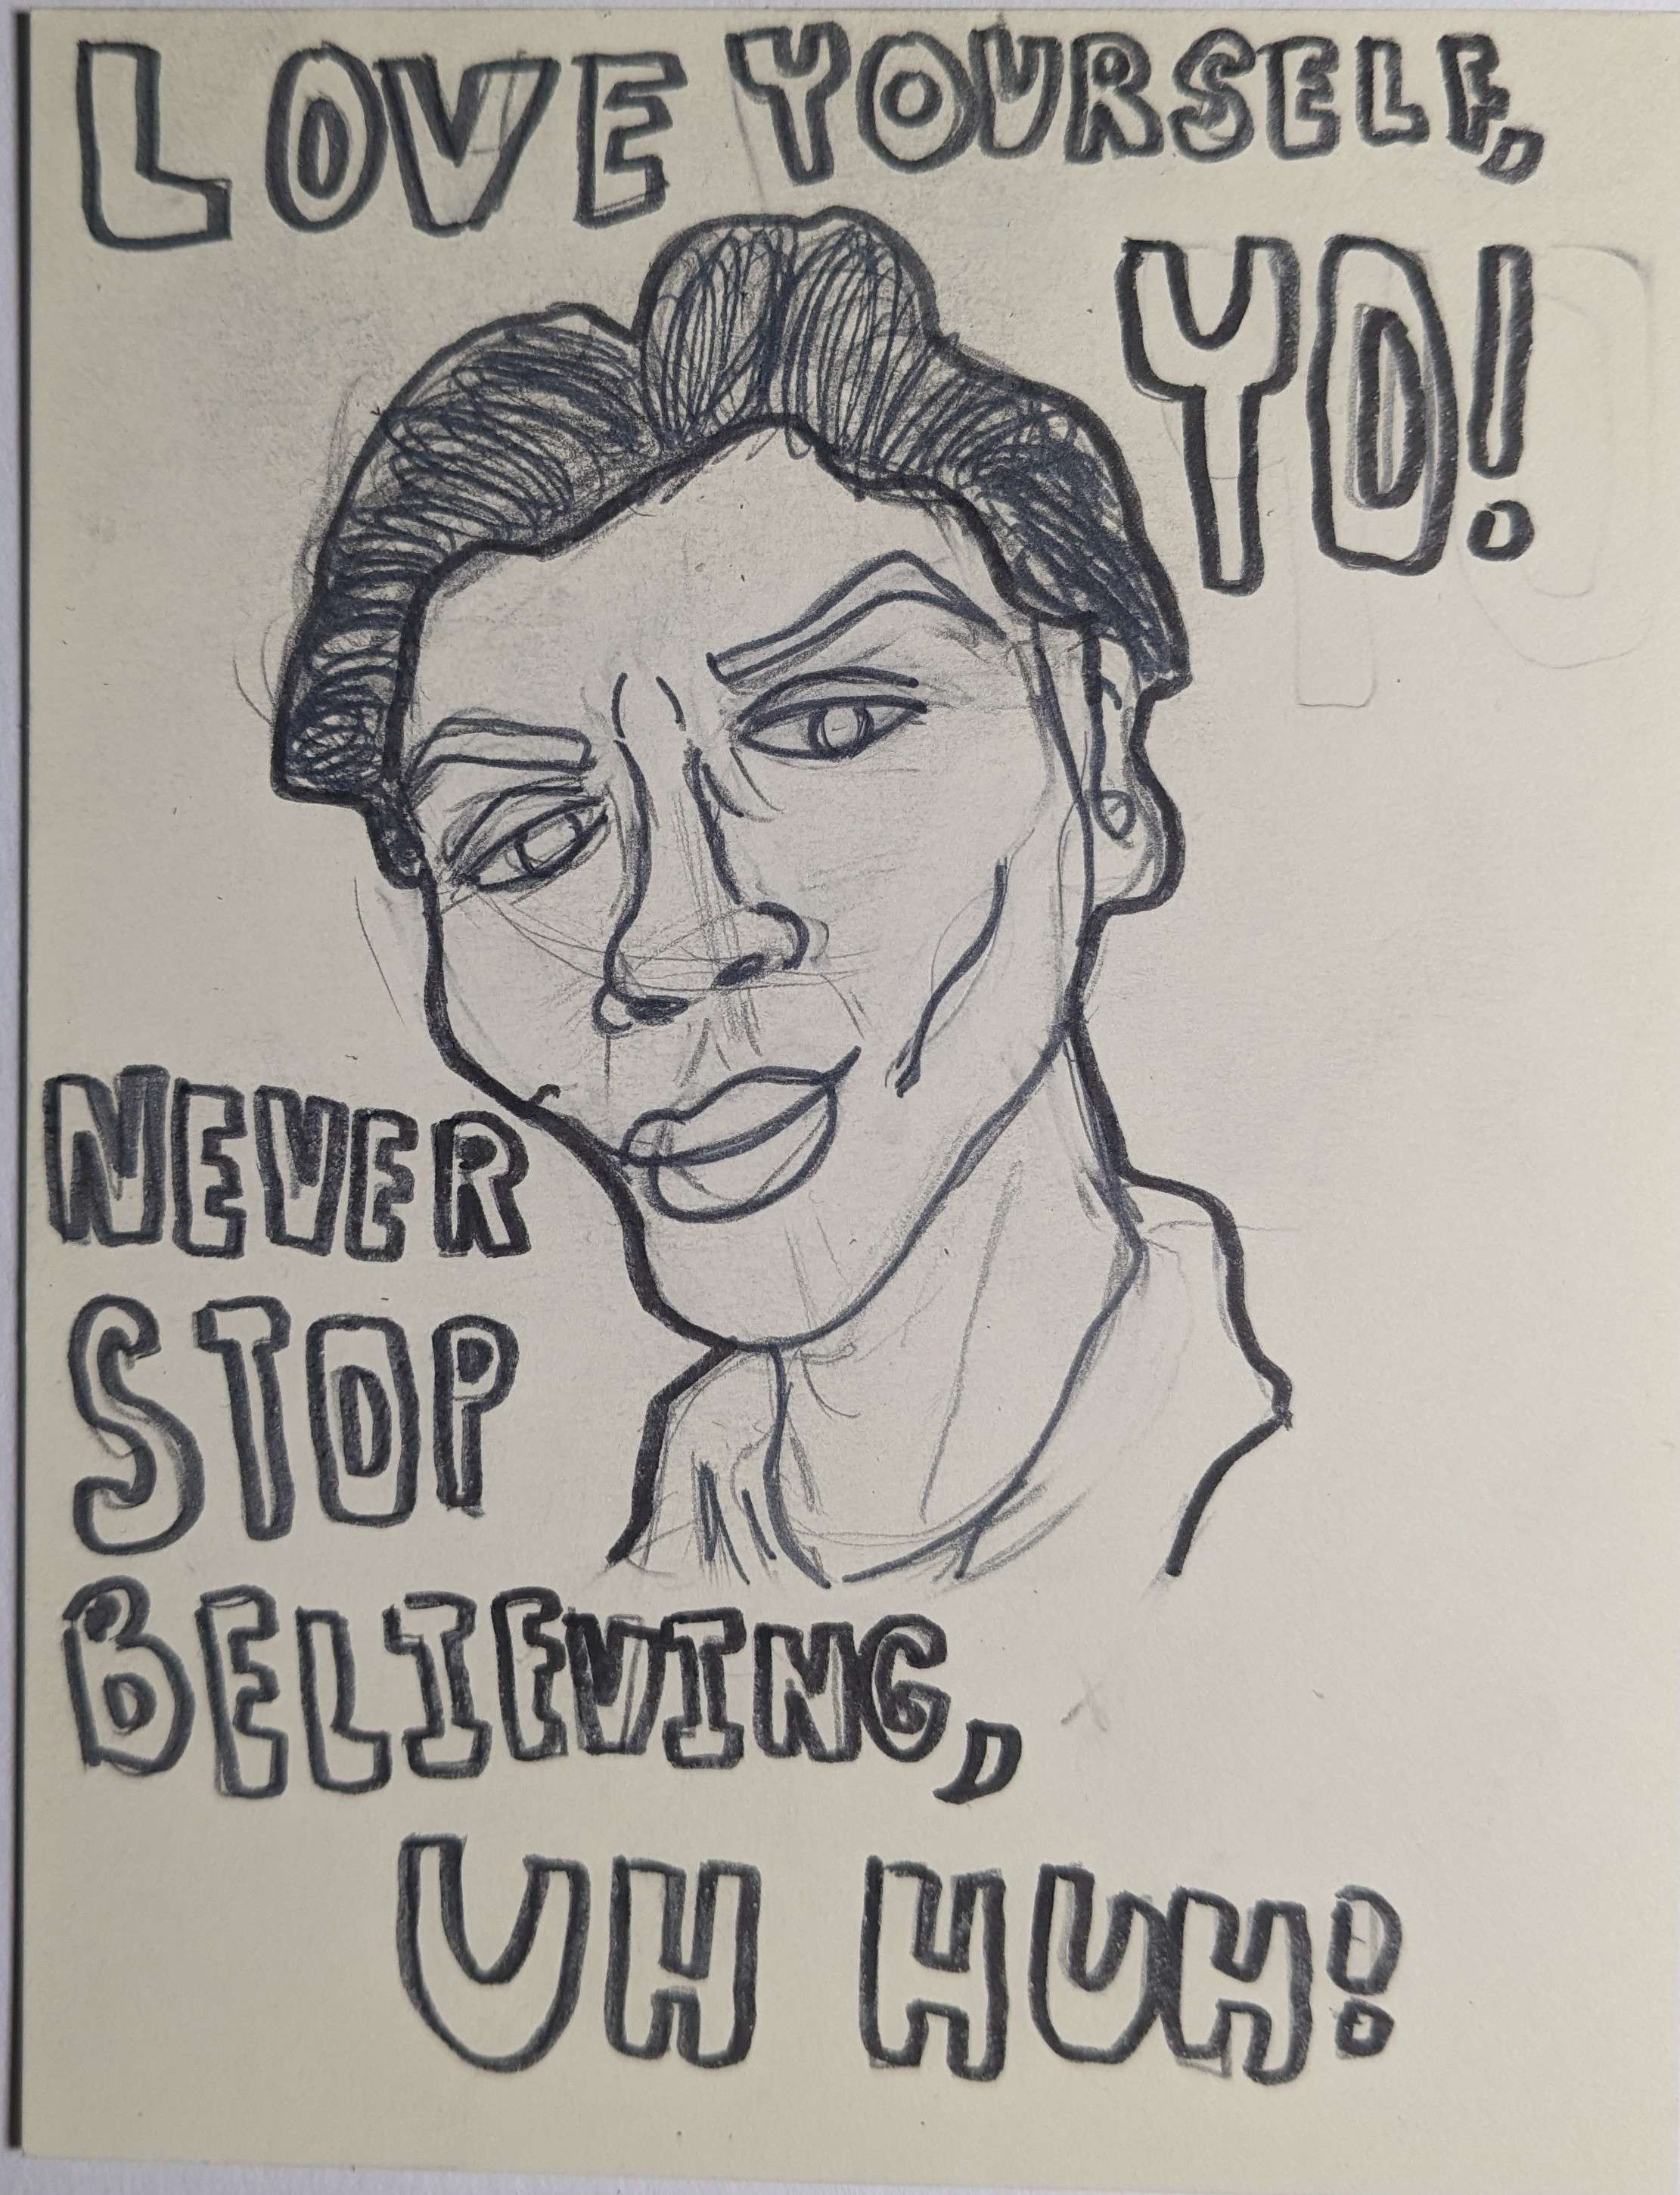 LOVE YOURSELF,
YO!
NEVER
STOP
BELIEVING,
UH HUH!